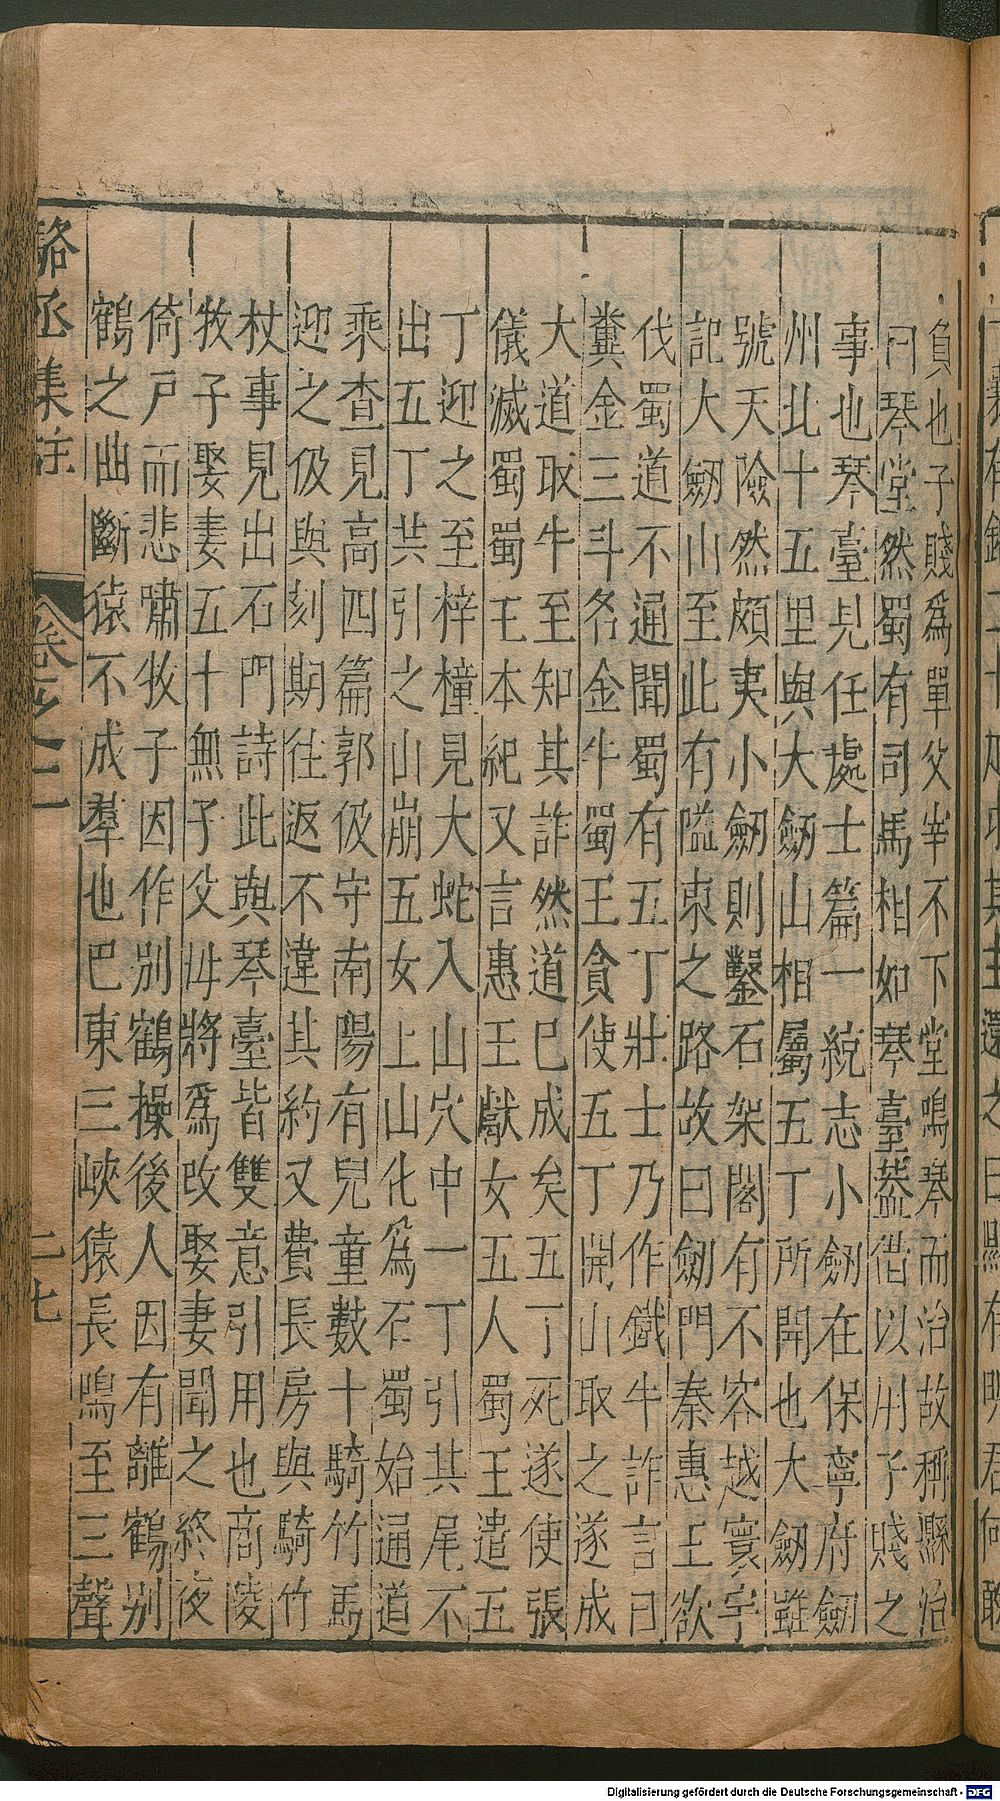 負也子賤爲單父宰不下堂鳴琴而治故稱縣治
曰琴堂然蜀有司馬相如琴臺葢借以用子賤之
事也琴臺見任處士篇一統志小劒在保寧府劒
州北十五里與大劒山相屬五丁所開也大劒雖
號天險然頗夷小劒則鑿石架閣有不容越寰宇
記大劒山至此有隘束之路故曰劒門秦惠王欲
伐蜀道不通聞蜀有五丁壯士乃作鐵牛詐言曰
糞金三斗名金牛蜀王貪使五丁開山取之遂成
大道取牛至知其詐然道已成矣五丁死遂使張
儀滅蜀蜀王本紀又言惠王獻女五人蜀王遣五
丁迎之至梓橦見大蛇入山穴中一丁引其尾不
出五丁共引之山崩五女上山化爲石蜀始通道
乘查見高四篇郭伋守南陽有兒童數十騎竹馬
迎之伋與刻期往返不違其約又費長房與騎竹
杖事見出石門詩此與琴臺皆雙意引用也商陵
牧子娶妻五十無子父母將爲改娶妻聞之終夜
倚戶而悲嘯牧子因作別鶴操後人因有離鶴別
鶴之曲斷猿不成羣也巴東三峽猿長鳴至三聲
駱丞集註 卷之二 二七
Digitalisierung gefördert durch die Deutsche Forschungsgemeinschaft - DFG